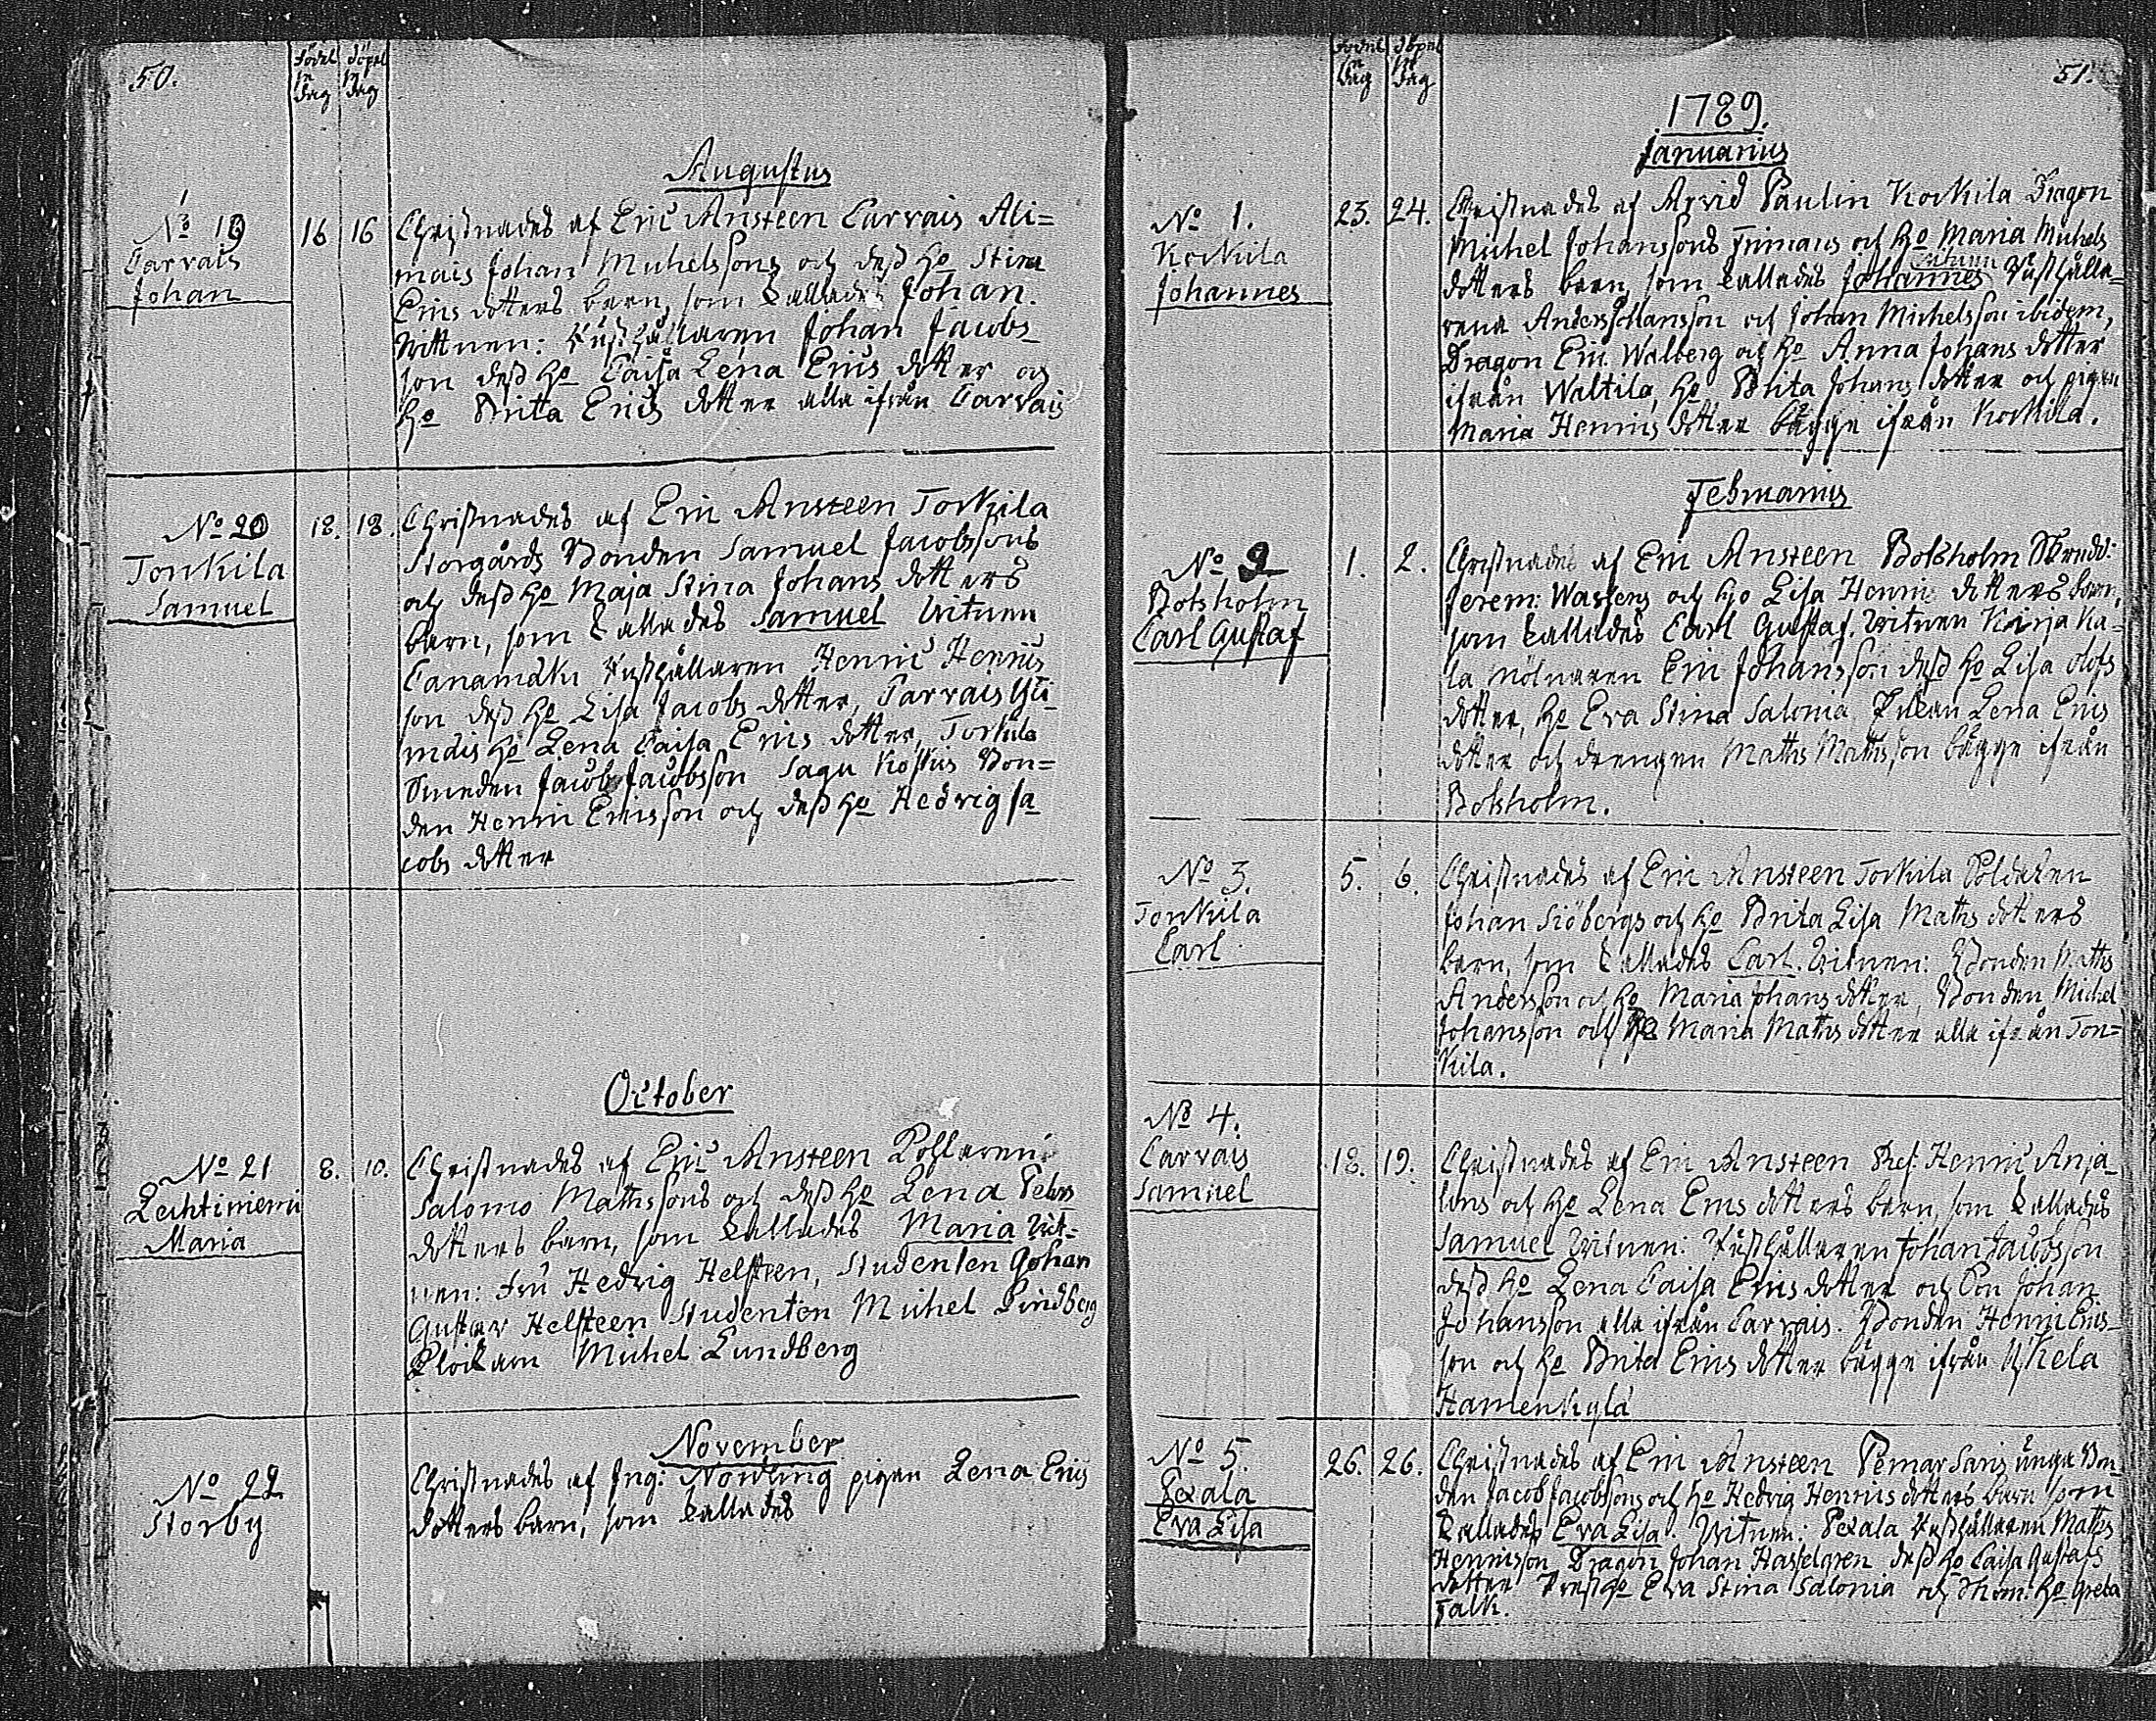 50.
Födel
se
dag
Döpel
se
dag
Augustus
No 19
Carvais
Johan
16
16
Christnades af Eric Ansteen Carvais Ali=
mais Johan Michelssons och dess Ho Stina
Erics dotters barn, som kallades Johan.
Wittnen: Rusthållaren Johan Jacobs
son dess Ho Caisa Lena Erics dotter och
Ho Britta Erics dotter alla ifrån Carvais
No 20
Torkila
Samuel
18.
18.
Christnades af Eric Ansteen Torkila
Storgårds Bonden Samuel Jacobssons
och dess Ho Maja Stina Johans dotters
barn, som kallades Samuel Witnen
Rusthållaren Henric Henrics
son dess Ho Lisa Jacobs dotter, Carvais
mais Ho Lena Caisa Erics dotter, Torkila
Smeden Jacob Jacobsson Sagu Bon=
den Henric Ericsson och dess Ho Hedvig Ja
cobs dotter
October
No 21
Lechtiniemi
Maria
8.
10.
Christnades af Eric Ansteen
Salomo Mathssons och dess Ho Lena Pehrs
dotters barn, som kallades Maria Wit=
nen: Fru Hedvig Helsteen, Studenten Johan
Gustav Helsteen Studenten Michel Lindberg
Klockarn Michel Lundberg
November
No 22
Storby
Christnades af Ing: Nordling pigan Lena Erics
dotters barn, som kallades
51.
Födel
se
dag
Döpel
se
dag
1789.
Januarius
No 1.
Korkila
Johannes
23.
24.
Christnades af Arvid Paulin Korkila Dragon
Michel Johanssons Frimans och Ho Maria Michels
dotters barn, som kallades Johannes Witnen Rusthålla=
rena Anders Johansson och Johan Michelsson ibidem,
Dragon Eric Walberg och Ho Anna Johans dotter
ifrån Waltila, Ho Brita Johans dotter och pigan
Maria Henrics dotter bägge ifrån Korkila.
Februarius
No 2
Botsholm
Carl Gustaf
1.
2.
Christnades af Eric Ansteen Botsholm Skredd:
Jerem: Wassens och Ho Lisa Henrics dotters barn,
som kallades Carl Gustaf. Witnen Kirja Ka=
la Mölnaren Eric Johansson dess Ho Lisa Olofs
dotter, Ho Eva Stina Salonia, Enkan Lena Erics
dotter och drengen Maths Mathsson bägge ifrån
Botsholm.
No 3.
Torkila
Carl
5.
6.
Christnades af Eric Ansteen Torkila Soldaten
Johan Siöbergs och Ho Brita Lisa Maths dotters
barn, som kallades Carl. Witnen: Bonden Maths
Andersson och Ho Maria Johans dotter, Bonden Michel
Johansson och Ho Maria Maths dotter alla ifrån Tor=
kila.
No 4.
Carvais
Samuel
18.
19.
Christnades af Eric Ansteen Ref: Henric Anja
lins och Ho Lena Erics dotters barn, som kallades
Samuel Witnen: Rusthållaren Johan Jacobsson
dess Ho Lena Caisa Erics dotter och Son Johan
Johansson alla ifrån Carvais. Bonden Henric Erics
son och Ho Brita Erics dotter bägge ifrån Uskela
Hamenkylä
No 5.
Pexala
Eva Lisa
26.
26.
Christnades af Eric Ansteen Pemar Saris unga Bon
den Jacob Jacobssons och Ho Hedvig Henrics dotters barn som
kallades Eva Lisa. Witnen: Pexala Rusthållaren Maths
Henricsson Dragon Johan Hasselgren dess Ho Caisa Gustafs
dotter Eva Stina Salonia och Ho Greta
Falk.